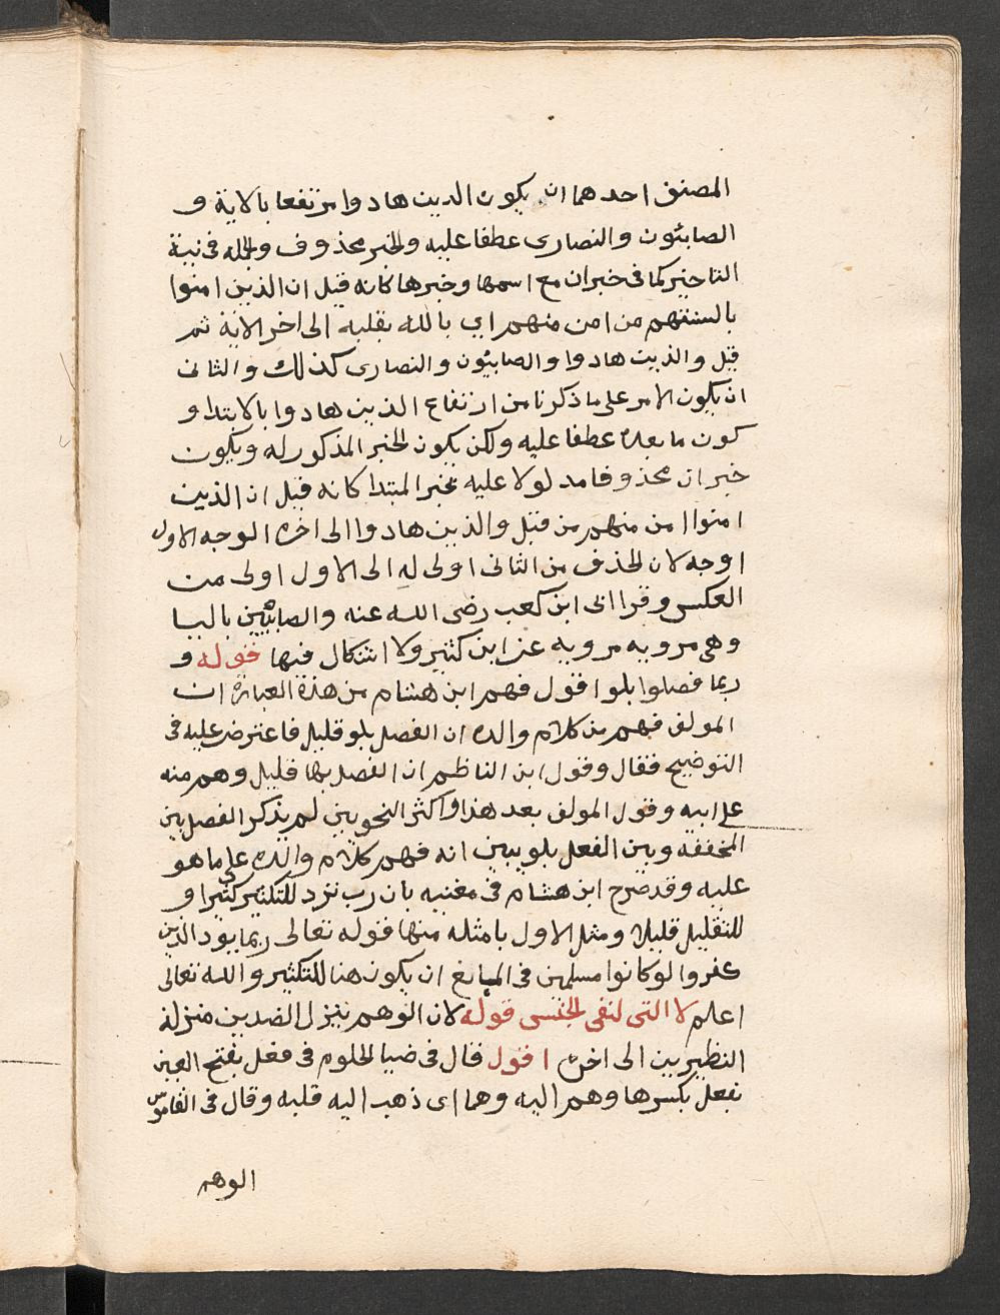 المصنف احدهما ان يكون الدين هادوا مرتفعا بالاية و
الصابئون والنصارى عطفا عليه والخبر محذوف والجمله فى نية
التاخير كما فى خبر ان مع اسمها وخبرها كانه قيل ان الذين امنوا
بالسنتهم من امن منهم اي بالله بقلبه الى اخر الاية ثم
قيل والذين هادوا والصابئون والنصارى كذلك والثانى
ان يكون الامر على ما ذكرنا من ارتفاع الذين هادوا بالابتدا و
كون ما بعده عطفا عليه ولكن يكون الخبر المذكور له ويكون
خبر ان محذوفا مدلولا عليه بخبر المبتدا كانه قيل ان الذين
امنوا امن منهم من قبل والذين هادوا الى اخره الوجه الاول
اوجه لان الحذف من الثانى اولى له الى الاول اولى من
العكس وقرا انى ابن كعب رضى الله عنه والصابيين باليا
وهى مرويه مرويه عن ابن كثير ولا اشكال فيها قوله و
ربما فصلوا بلو اقول فهم ابن هشام من هذه العبارة ان
المولف فهم من كلام والده ان الفصل بلو قليل فاعترض عليه فى
التوضيح فقال وقول ابن الناظم ان الفصل بها قليل وهم منه
على ابيه وقول المولف بعد هذا واكثر النحويين لم يذكر الفصل بين
المخففه وبين الفعل بلو يبين انه فهم كلام والده على ما هو
عليه وقد صرح ابن هشام فى مغنيه بان رب ترد للتكثير كثيرا و
للتقليل قليلا ومثل الاول بامثله منها قوله تعالى ربما يود الذين
كفروا لو كانوا مسلمين فى المانع ان يكون هنا للتكثير والله تعالى
اعلم لا التى لنفى الجنسى قوله لان الوهم ينزل الضدين منزلة
النظيرين الى اخره اقول قال فى ضيا الحلوم فى فعل بفتح العين
يفعل بكسرها وهم اليه وهما اى ذهب اليه قلبه وقال فى القاموس
الوهم